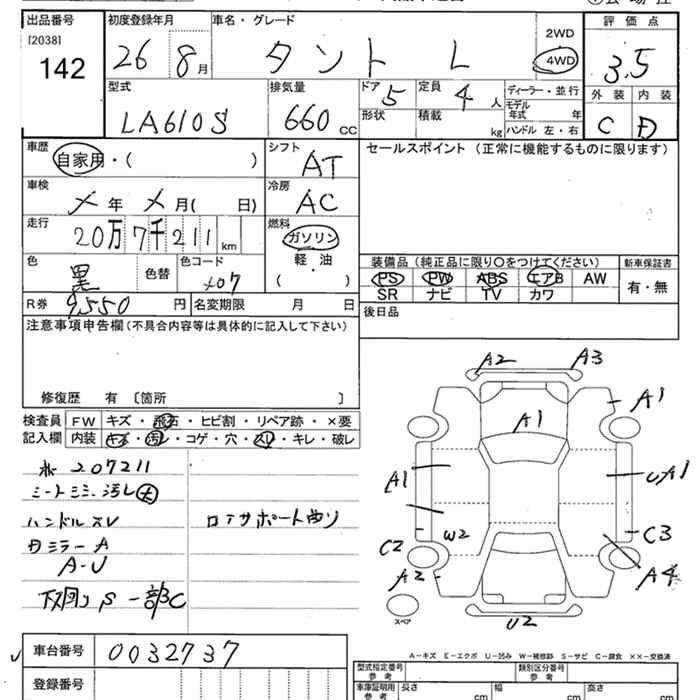 出品番号 初度登録年月 車名・グレード 評価点
[2038] 142 26 8月 タント L 2WD 4WD 3.5
型式 排気量 ドア 定員 ディーラー・並行 外装 内装
LA610S 660 CC 5 4人 モデル年式 年 C D
形状 積載 kg ハンドル 左・右
車歴 自家用・( ) シフト AT セールスポイント (正常に機能するものに限ります)
車検 メ年 メ月( 日) 冷房 AC
走行 20万7千211km 燃料 ガソリン
軽油
( )
色 黒 色替 色コード X07
装備品 (純正品に限り○をつけてください) 新車保証書
PS PW ABS エアB AW 有・無
SR ナビ TV カワ
R券 9,550円 名変期限 月 日 後日品
注意事項申告欄 (不具合内容等は具体的に記入して下さい)
修復歴 有 〔箇所 〕
検査員 FW キズ・飛石・ヒビ割・リペア跡・×要
記入欄 内装 キズ・汚レ・コゲ・穴・スレ・キレ・破レ
207211
シートシミ、汚レ大
ハンドルスレ ロアサポート曲リ
ミラーA
A-U
下廻りS一部C
A2 A3
A1 A1
A1 UA1
C2 W2 C3
A2 A4
スペア U2
A-キズ E-エクボ U-凹み W-補修跡 S-サビ C-腐食 XX-交換済
車台番号 0032737
型式指定番号 参考 類別区分番号 参考
登録番号
車庫証明用 参考 長さ cm 幅 cm 高さ cm